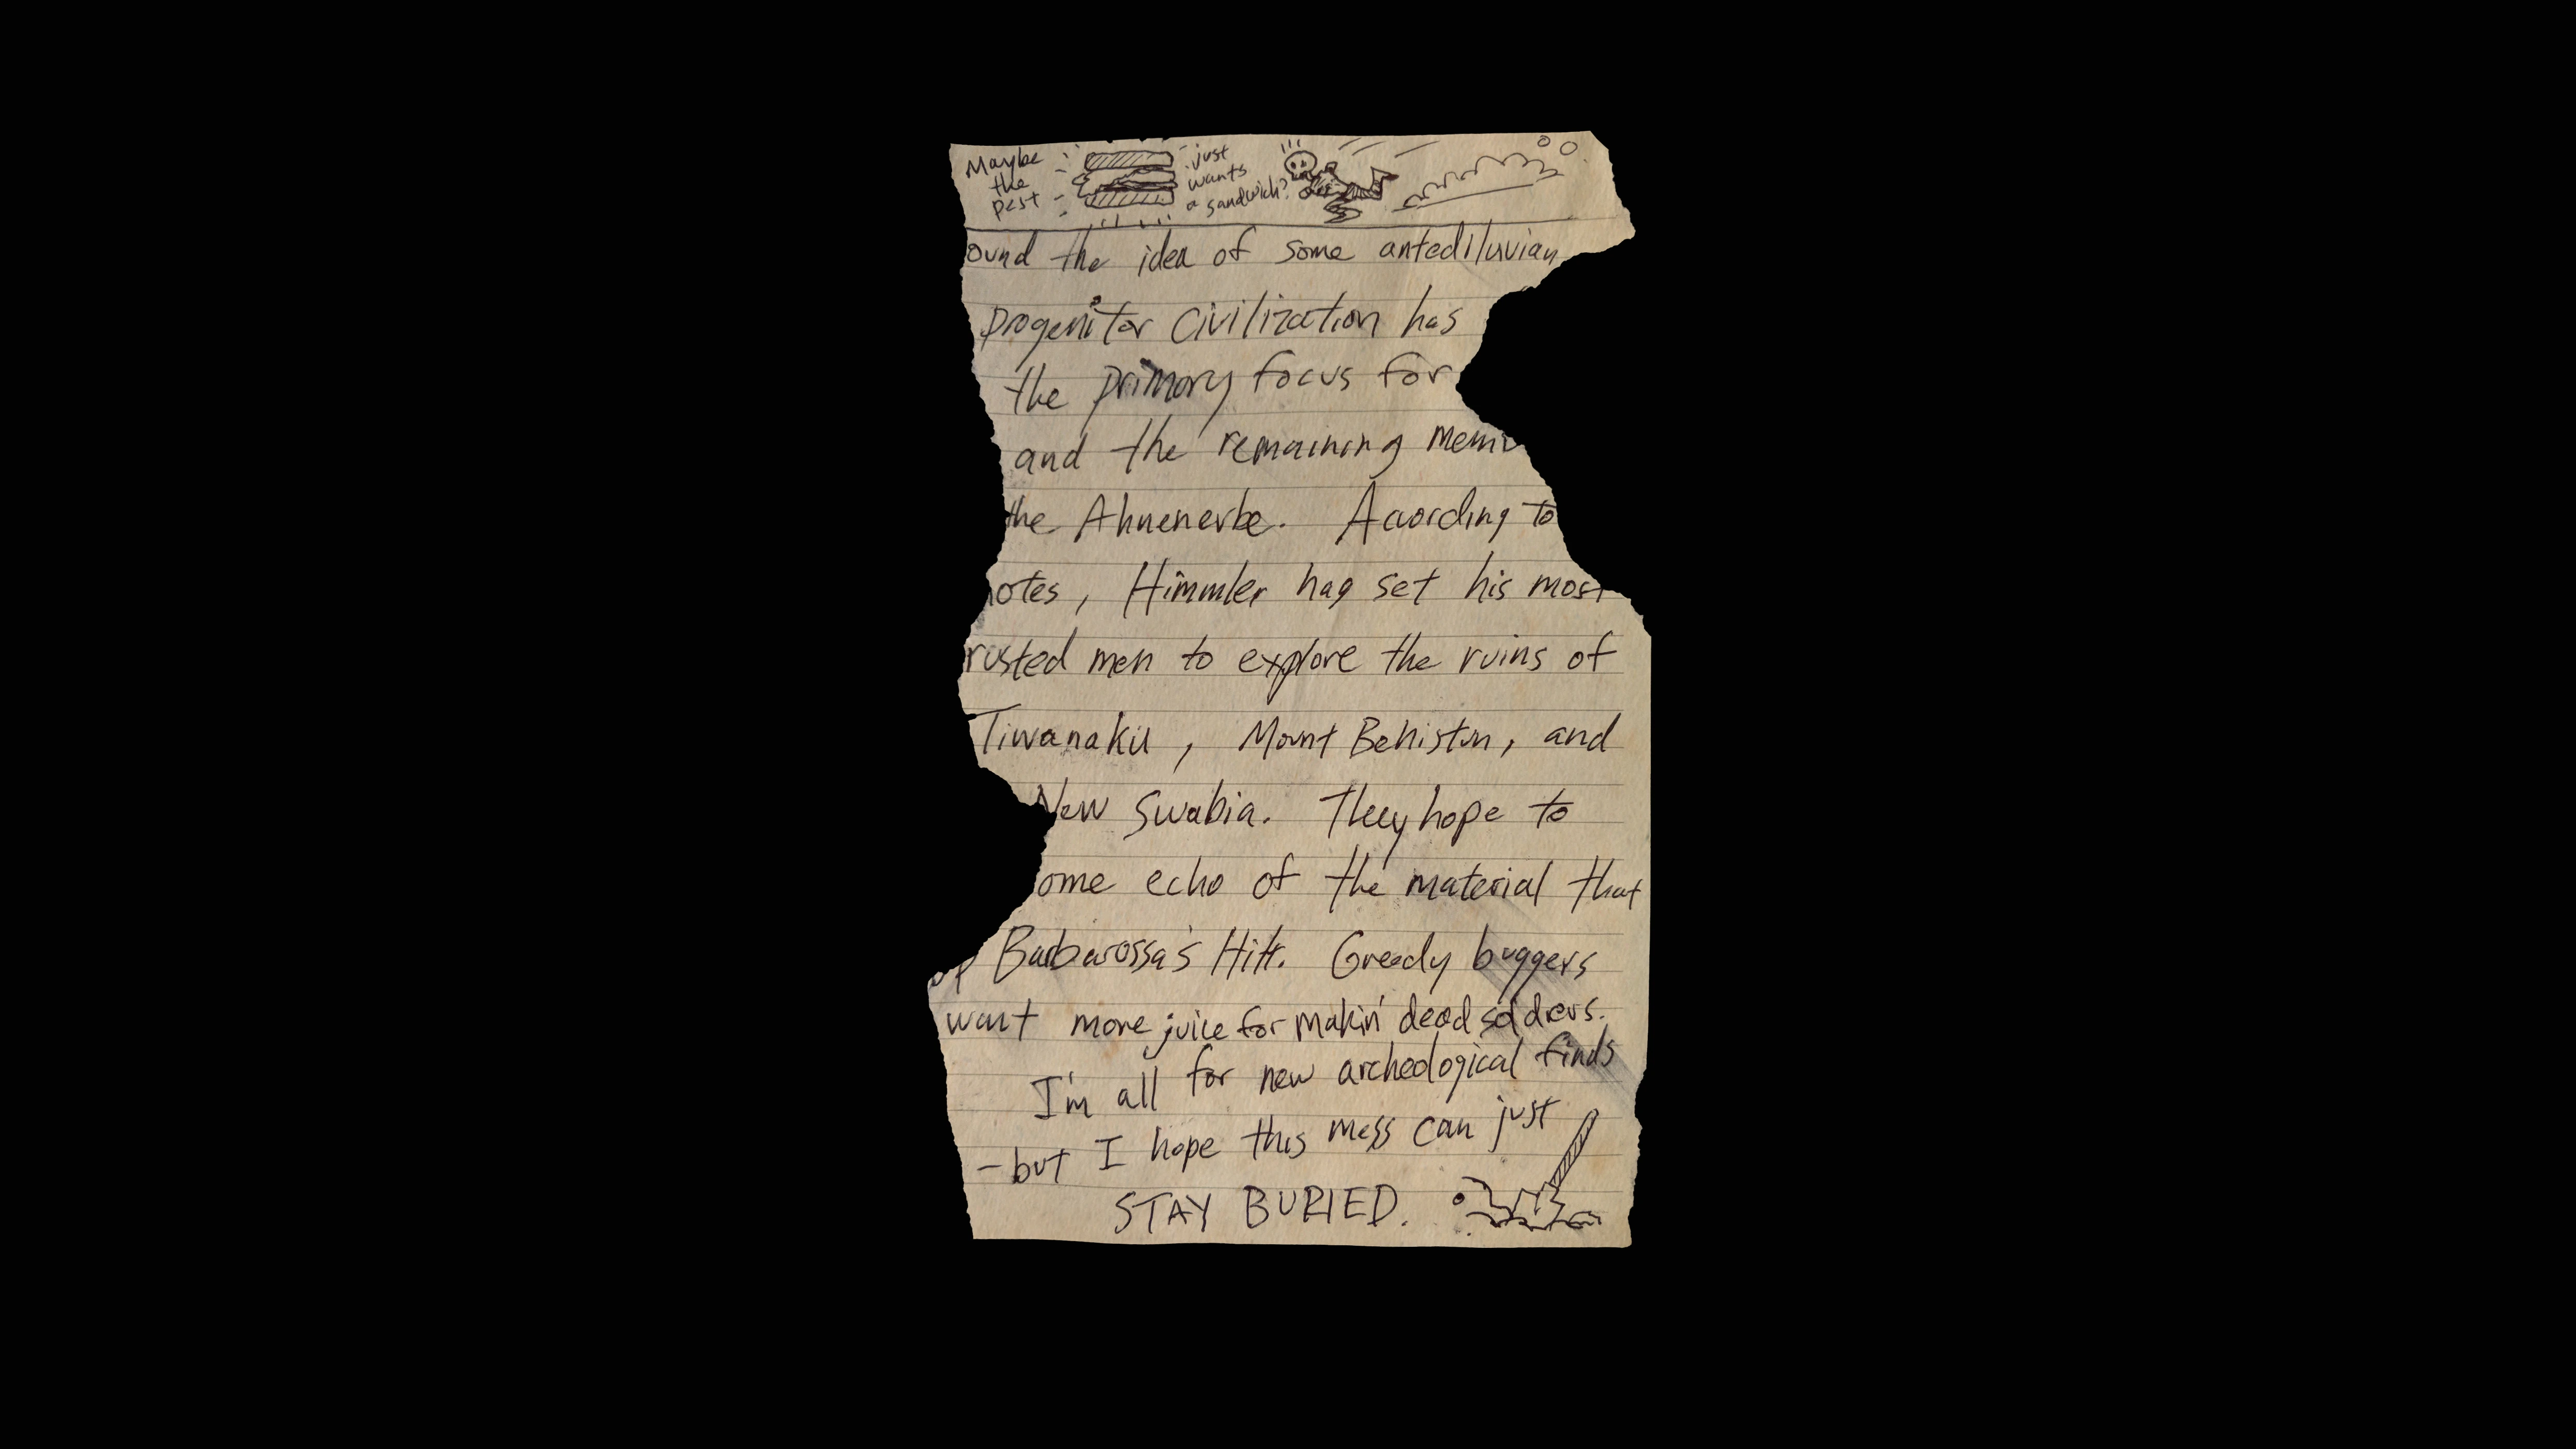 Maybe
the
pest
just
wants
a sandwich?
ound the idea of some antediluvian
progenitor civilization has
the primary focus for
and the remaining mem
the Ahnenerbe. According to
notes, Himmler has set his most
rusted men to explore the ruins of
Tiwanaku, Mount Behistun, and
New Swabia. They hope to
ome echo of the material that
op Barbarossa's Hilt. Greedy buggers
want more juice for makin' dead soldiers.
I'm all for new archeological finds
-but I hope this mess can just
STAY BURIED.